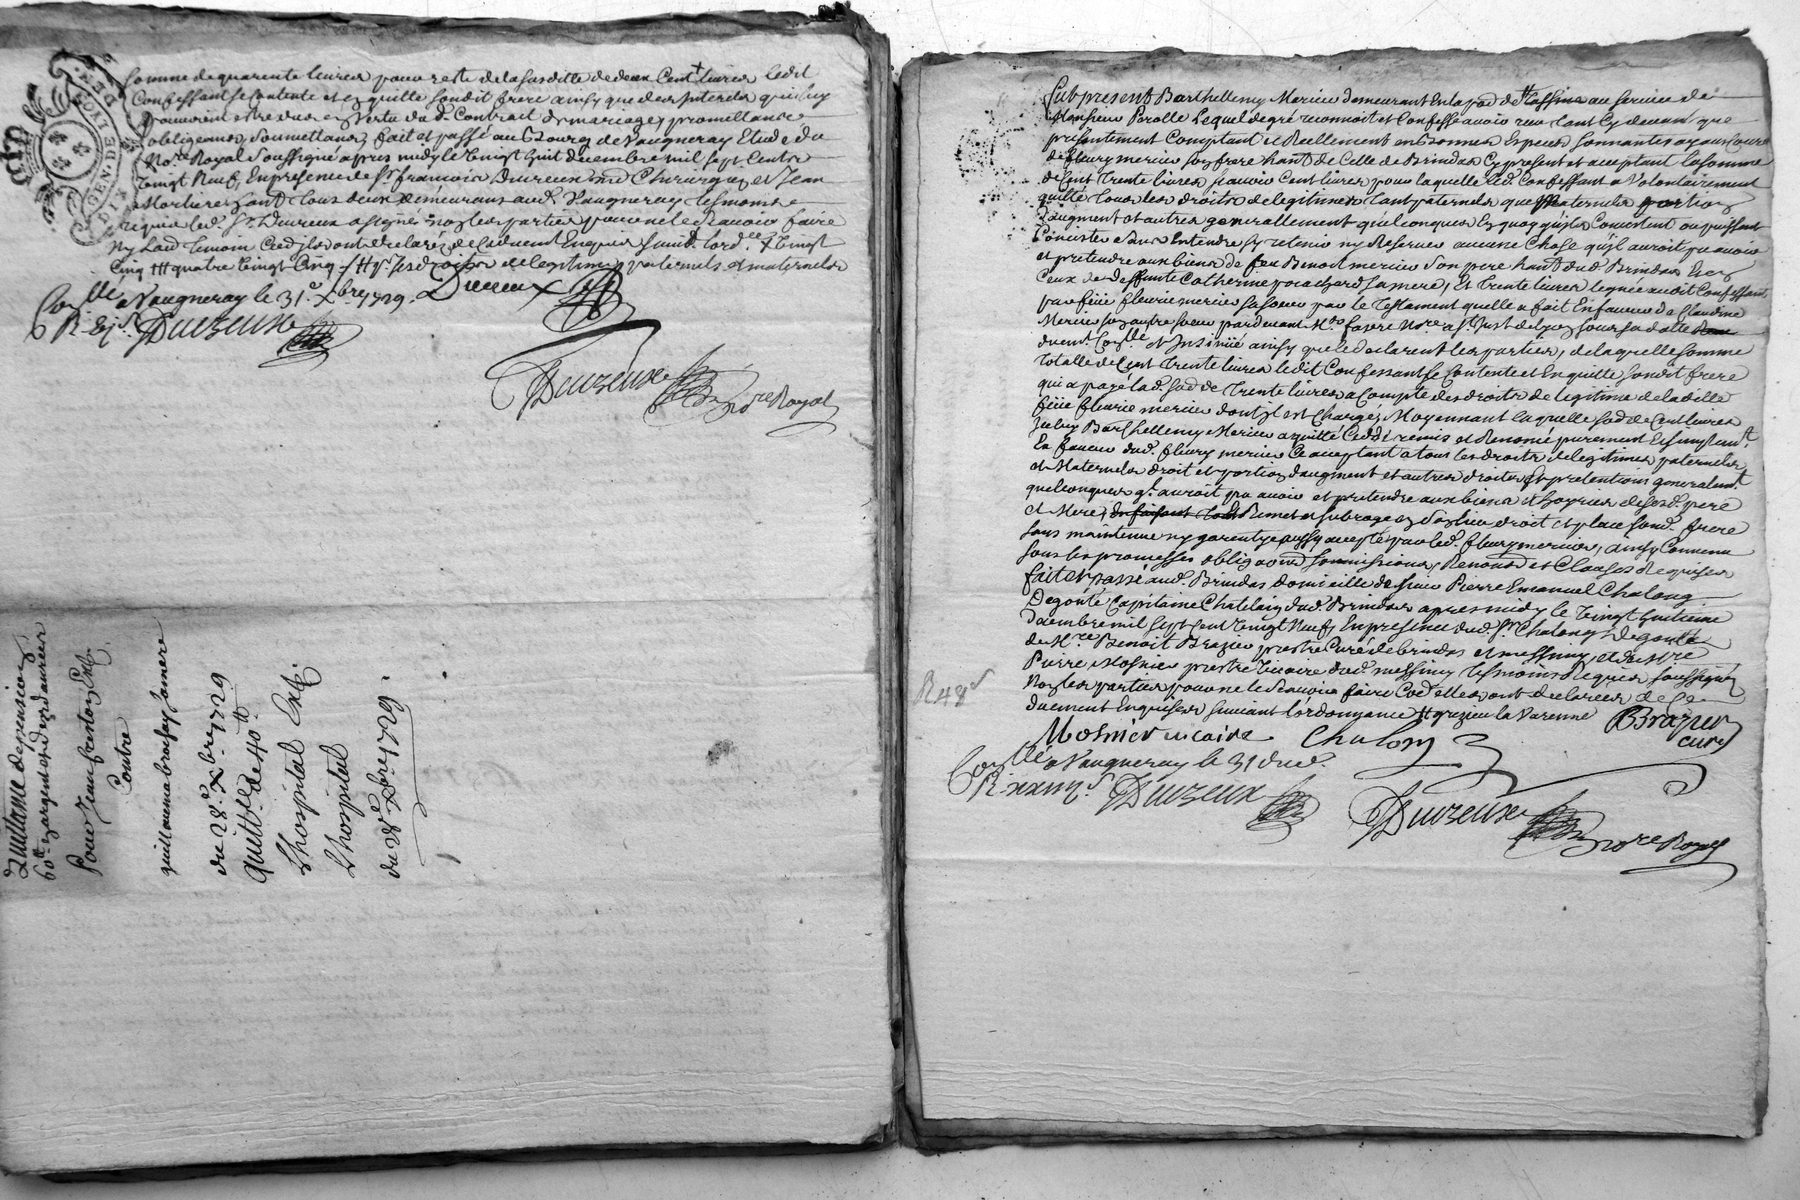 somme de quarente livres pour reste de la susditte de deux Cent livres ledit
Confessant se Contente et en quitte sondit frere ainsy que des Interets qui luy
pouvoient estre dus en vertu dud. Contrait de mariage, promettance
obligeance, soumettans, fait et passé au Bourg de Vaugneray Etude du
No.re Royal soussigné apres midy le vingt huit decembre mil sept Cents
vingt neuf, En presence de Sr francois Duvreux md Chirurgien et Jean
habitants tous deux demeurans aud. Vaugneray tesmoins
requis led. Sr Duvreux a signé non les parties pour ne le scavoir faire
ny laud. temoin Cy de ils ont declarez de Ce duement Enquis suivt lord.ce
Cinq quatre vingt Cinq. ses droits de legitime paternels et maternels
Con.lle a Vaugneray le 31.e Xbre 1729. Duvreux
Duvzeux
Duvzeux
no.re Royal
quittance de pension
60.tt en argent
Pour Jean
Contre
guillauma brossy sa mere
du 28.e Xbre 1729
quitt.ce de 40.tt
Lhospital Ext.
Lhospital
du 28.e Xbre 1729.
R 48
fut present Barthellemy Mercier demeurant En la par.se de au service de
Monsieur Perolle Lequel de gré reconnoit et Confesse avoir receu tant Cy devant que
presentement Comptant et Reellement en bonnes Especes sonnantes ayant Cours
de fleury mercier son frere hant de Celle de Brindas Cy present et acceptant la somme
de Cent trente livres scavoir Cent livres pour laquelle led. Confessant a volontairement
quitté tous les droits de legitimes tant paternels que Maternels portion
daugment et autres generallement quelconques En quoy quils Consistent ou puissent
Consister sans Entendre sy retenir ny Reserver aucune Chose quil auroit pu avoir
et pretendre aux biens de feu Benoit mercier son pere hant dud. Brindas Et en
Ceux de deffunte Catherine pocachard sa mere, Et trente livres leguée audit Confessant
par fiiie fleurie mercier sa soeur par le testament quelle a fait En faveur de Claudine
Mercier son autre soeur pardevant M.e favre No.re a St Just de Lyon sous sa datte
duem.t Con.lle et Insinüé ainsy que le declarent les parties, de laquelle somme
totalle de Cent trente livres ledit Confessant se Contente et En quitte sondit frere
qui a payé lad. som.e de trente livres a Compte des droits de legitime de ladite
fiiie fleurie mercier dont il est Chargé, Moyennant laquelle som.e de Cent livres
Iceluy Barthellemy Mercier a quitté Ceddé remis et Renoncé purement Et simplem.t
En faveur dud. fleury mercier Ce acceptant a tous les droits de legitimes paternels
et Maternels droit et portion daugment et autres droits Et pretentions generalem.t
quelconques ql. auroit pu avoir et pretendre aux biens et hoyries desesd. pere
et Mere, En faisant tout Remet et subroge En son lieu droit et place sond. frere
sans maintenue ny garentye aussy accepté par led. fleury mercier, ainsy Convenu
sous les promesses obligaons soumissions, Renonons et Clauses Requises
fait Et passé aud. Brindas domicille de sieur Pierre Emanuel Chalong
Degouté Capitaine Chatelain dud. Brindas apres midy le vingt huitieme
decembre mil sept Cent vingt Neuf, En presence dud. Sr Chalong Degouté
de M.re Benoit Brazier prestre Curé de brindas et messimy, et de M.re
Pierre Mosnier prestre vicaire dud. messimy tesmoins Requis soussignéz
Non les parties pour ne le Scavoir faire Cy de Elles ont declarées de Ce
duement Enquises suivant L'ordonnance grezieu la Varenne
BBrazier
Curé
Mosnier vicaire Chalong
Con.llé a Vaugneray le 31 dud.
Duvzeux
Duvzeux
no.re Royal